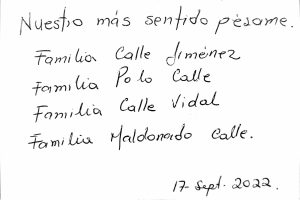 Nuestro más sentido pésame.
Familia Calle Jiménez
Familia Polo Calle
Familia Calle Vidal
Familia Maldonado Calle.
17- Sept. 2022.